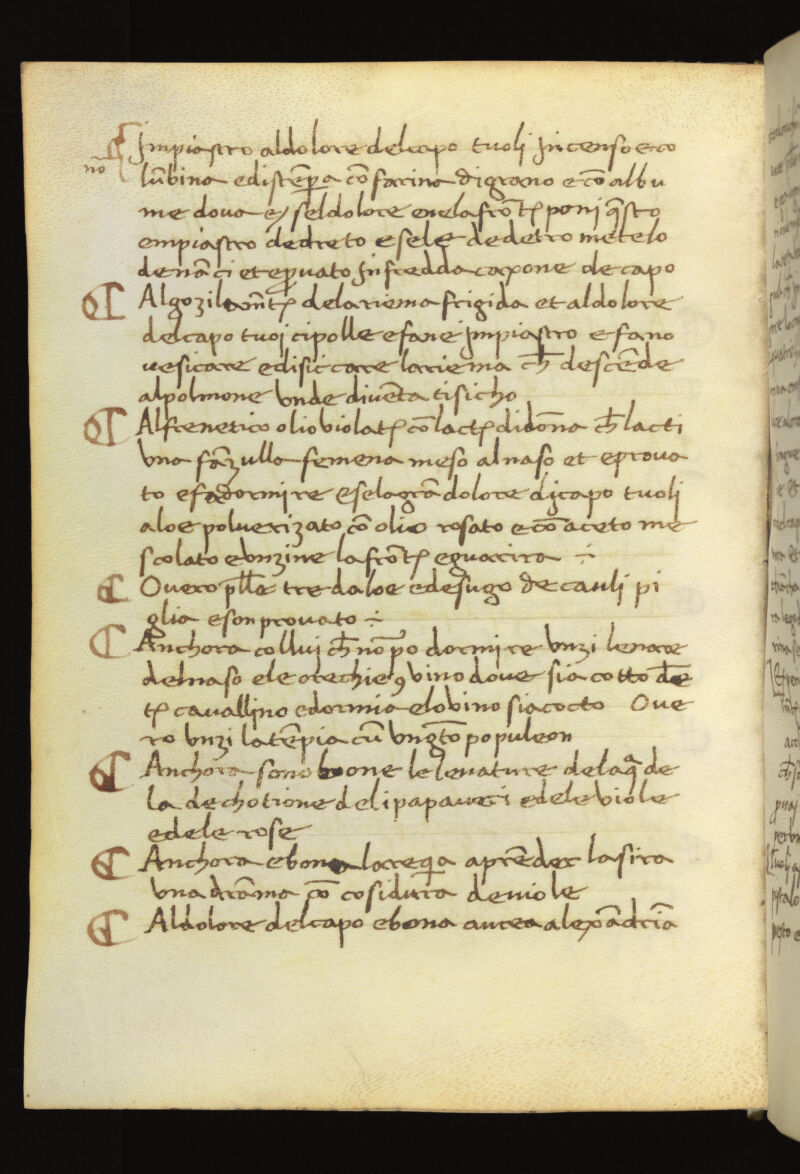 Impiastro al dolore del capo tuoli Incenso e co
nō lūbina e distēpera cō farina di grano e cō albu
me dova e se l dolore e ne la frōte ponj q̄sto
empiastro dedreto e se le de detro metelo
denāci et e p̄vato In fredda caxone de capo
de la riema frigida et al dolore
del capo tuoj cipolle e fane jmpiastro e fano
vesicare e disiccare la riema ch̄ descēde
al polmone unde divēta tisicho
Al frenetico olio violato cō lacte di dōna ch̄ lacti
una fāzulla femena meso al naso et e prova
to e fa dormire e se la grā dolore dj capo tuoli
aloe polverizato cō olio rosato e cō aceto me
scolato e unzine la frōte e guarira ÷
Overo tre d aloe e de sugo de caulj pi
glia e son provato ÷
Anchora collui ch̄ nō po dormire unzi le nare
del naso e le orechie vino dove sia cotto de
cavallino e dormia e lo vino sia cocto Ove
ro unzi la tēpia cū ungto populeon
Anchora sono bone le lenature de laq̄ de
la dechotione deli papaveri e dele viole
e dele rose
Anchora e bona aprēder la sira
una drāma cō de viole
Al dolore del capo e bona aurea alexādrīa